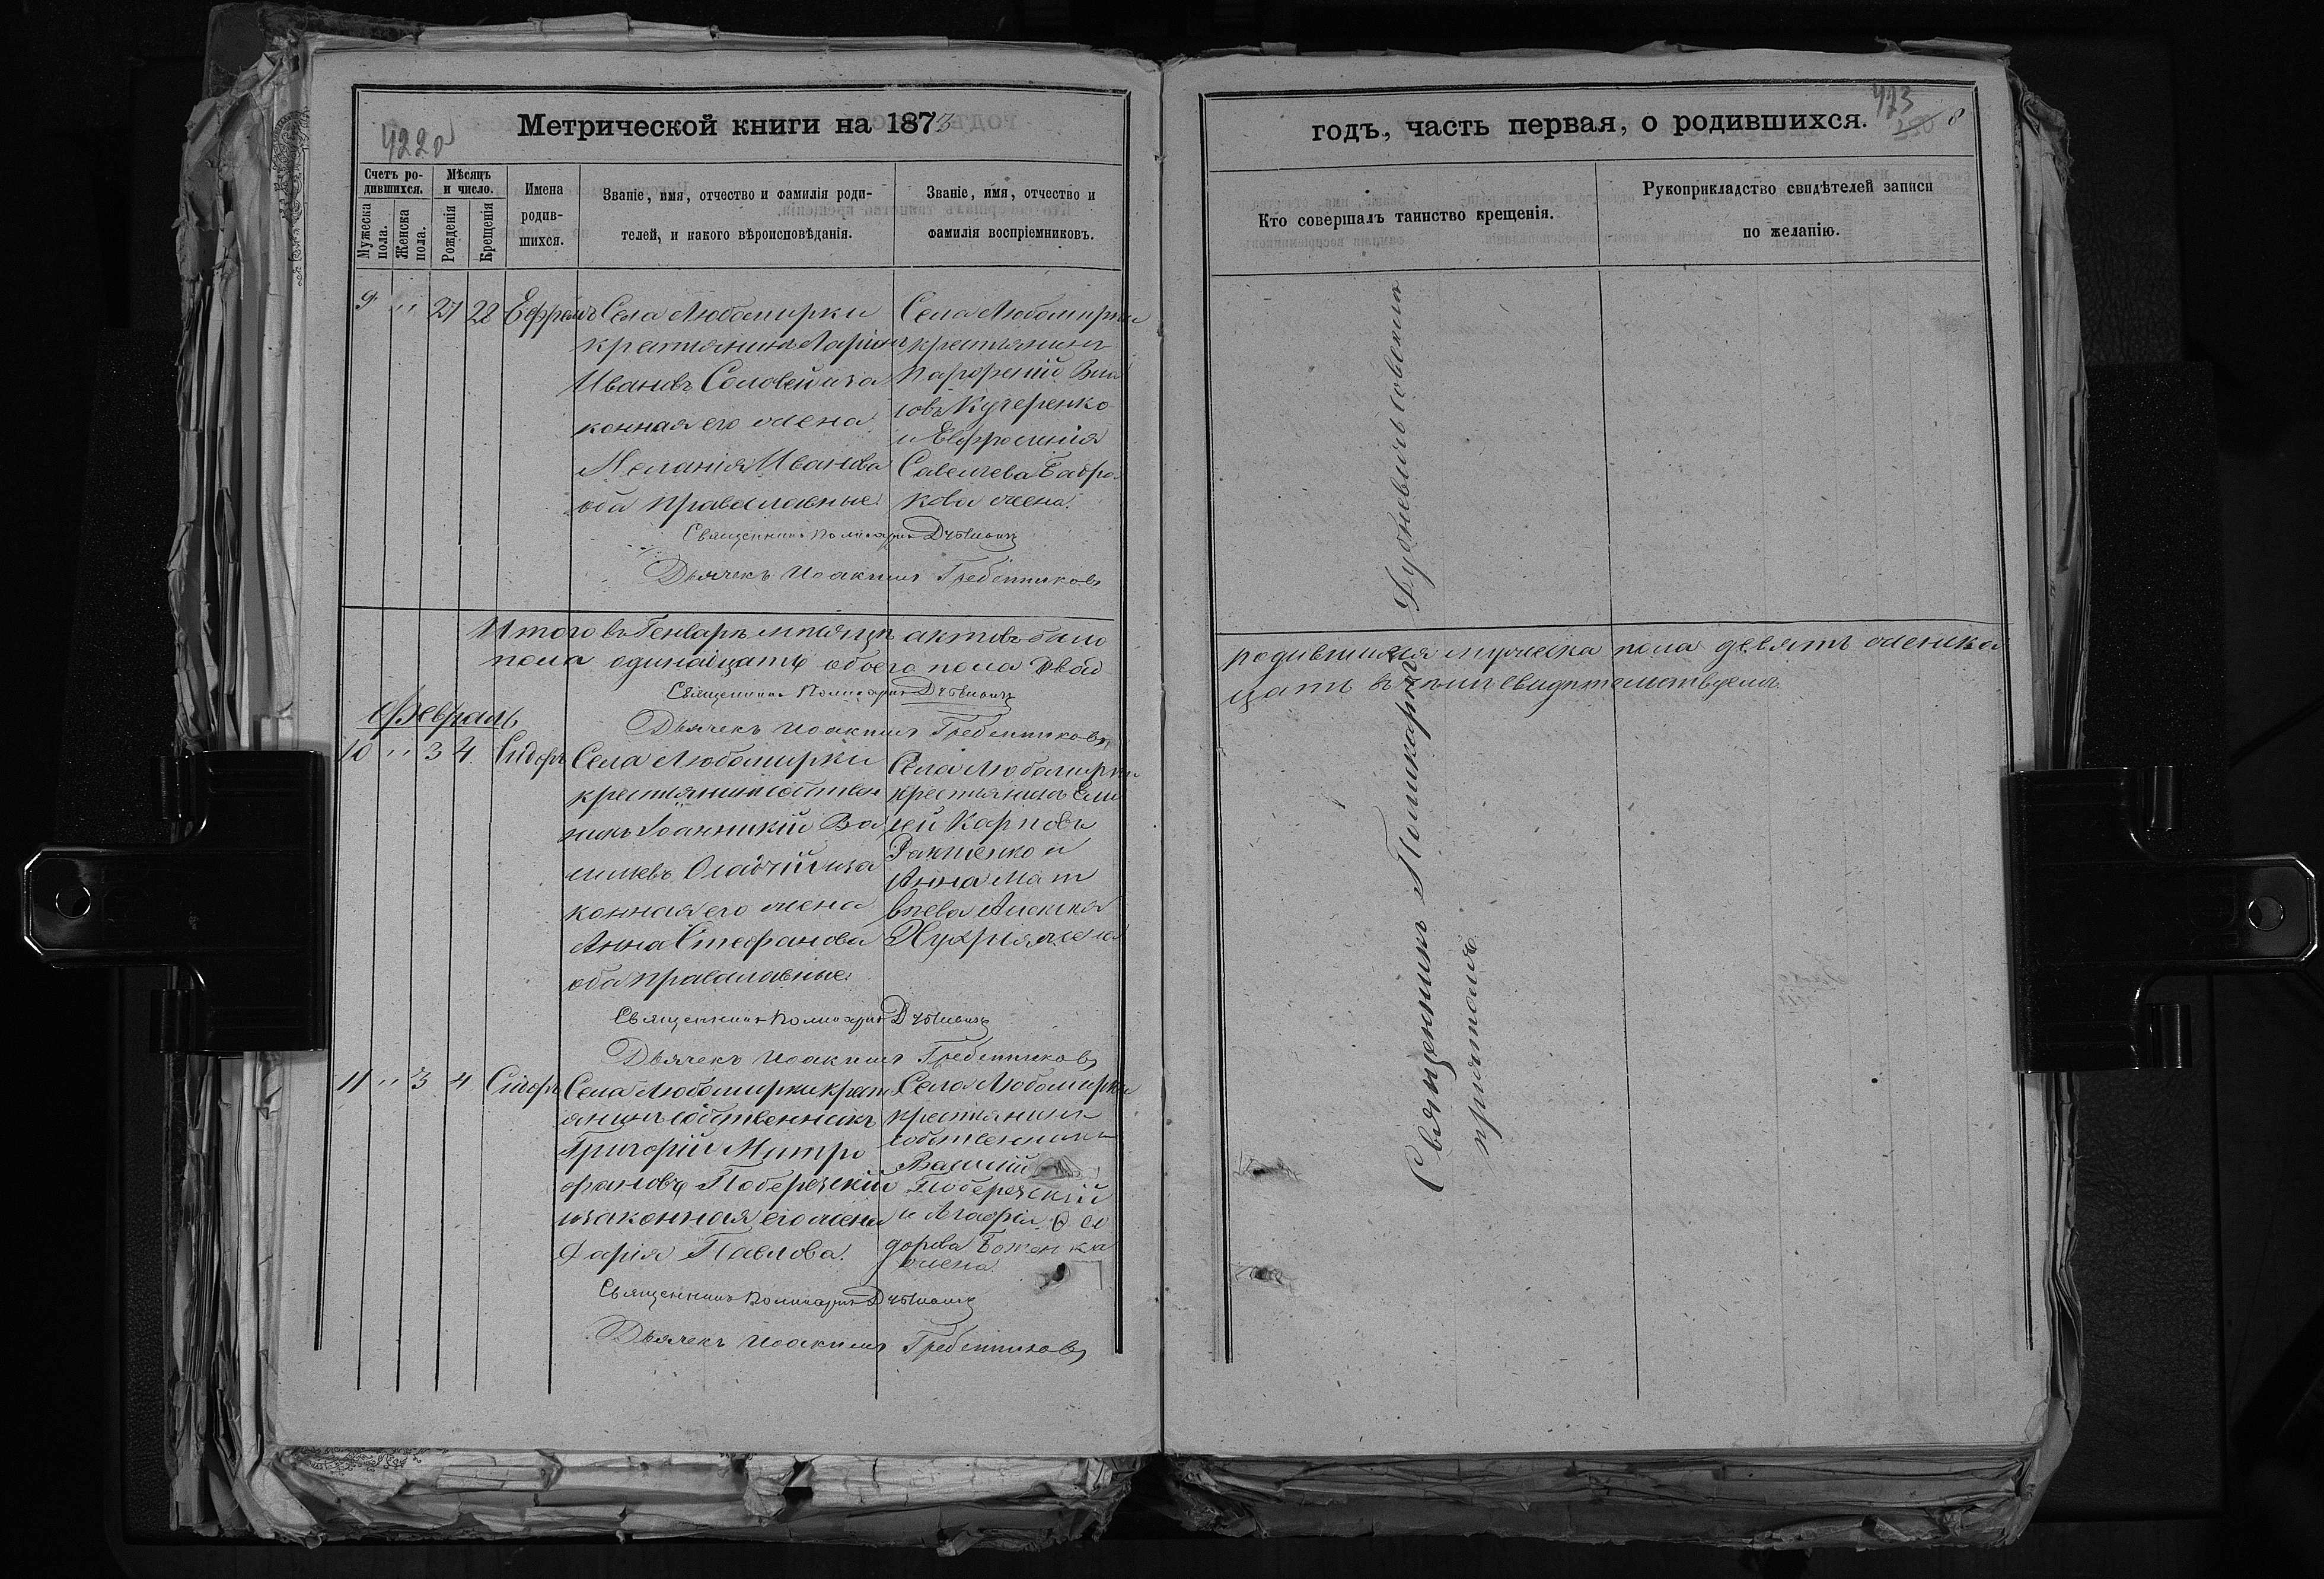 422 об
Метрической книги на 1873
Счетъ ро-
дившихся.
Мѣсяцъ
и число.
Мужеска
пола.
Женска
пола.
Рожденія
Крещенія
Имена
родив-
шихся.
Званіе, имя, отчество и фамилія роди-
телей, и какого вѣроисповѣданія.
Званіе, имя, отчество и
фамилія воспріемниковъ.
9 " 27 28 Ефремъ
Села Любомирки
крестянинъ Ларіонъ
Ивановъ Соловей иза
конная его жена
Меланія Иванова
оба православные.
Села Любомирки
крестянинъ
Парфеній
совъ Кучеренко
и Евфросинія
Савелиева
кова жена.
Священникъ Поликарпъ
Дьячекъ Иоакимъ Гребенниковъ
Итого въ Генварѣ мѣсяцѣ актовъ было
пола одинадцать обоего пола двад
Священникъ Поликарпъ
Дьячекъ Иоакимъ Гребенниковъ
Февраль
10 " 3 4 Сидоръ
Села Любомирки
крестянинъ собствен
никъ Іоанникій Ва
силиевъ иза
конная его жена
Анна Стефанова
оба православные.
Села Любомирки
крестянинъ Ели
сей Карповъ
и
Анна Мат
вѣева
жена
Священникъ Поликарпъ
Дьячекъ Иоакимъ Гребенниковъ
11 " 3 4 Сидоръ
Села Любомирки крест
янинъ собственникъ
Григорій Митро
фановъ Поберезскій
изаконная его жена
Дарія Павлова.
Села Любомирки
крестянинъ
собственникъ
Василій
Поберезскій
и Агафія Ѳео
дорова Боженка
жена.
Священникъ Поликарпъ
Дьячекъ Иоакимъ Гребенниковъ
годъ, часть первая, о родившихся.
423
8
Кто совершалъ таинство крещенія.
Рукоприкладство свидѣтелей записи
по желанію.
родившихся мужеска пола девять женска
цать в чемъ свидѣтельствуемъ.
Священникъ Поликарпъ